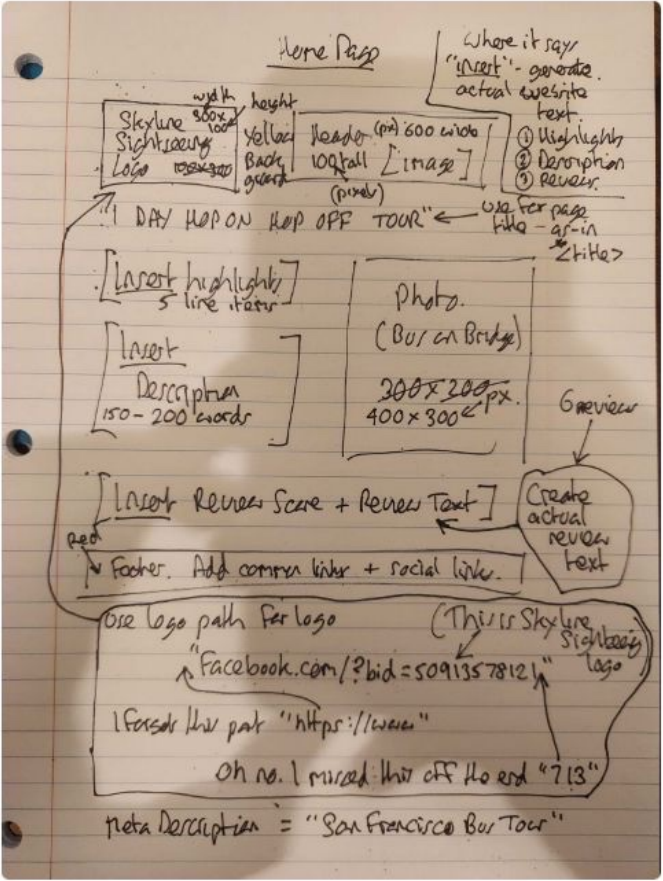 Home Page
Where it says
"insert" - generate
actual website
text.
① Highlights
② Description
③ Review.
Skyline
Sightseeing
Logo 100x300
width
300x
100
height
Yellow
Back
ground
Header (px) 600 wide
100 tall [image]
(pixels)
"1 DAY HOP ON HOP OFF TOUR"
use for page
title - as-in
<title>
[Insert highlights]
5 line items
[Insert
Description
150-200 words]
Photo.
(Bus on Bridge)
300 x 200
400 x 300 px.
6 review
[Insert Review Score + Review Text]
Create
actual
review
text
Red
Footer. Add common links + social links.
Use logo path for logo
(This is Skyline
Sightseeing
logo
"Facebook.com/?bid=50913578121"
I forgot this part "https://www"
Oh no. I missed this off the end "713"
Meta Description = "San Francisco Bus Tour"